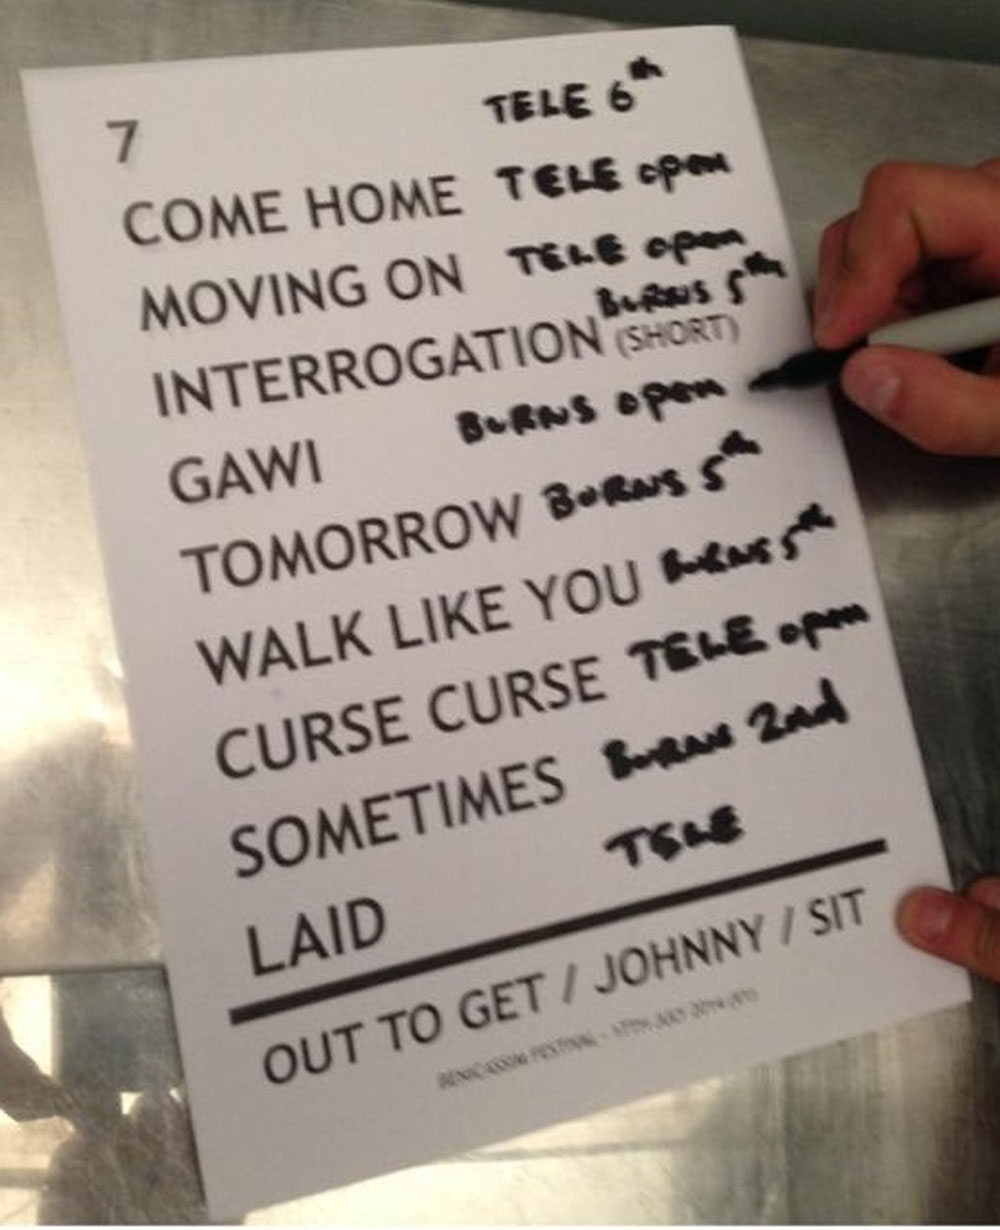 7 TELE 6th
COME HOME TELE open
MOVING ON TELE open
BURNS 5th
INTERROGATION (SHORT)
GAWI BURNS open
TOMORROW BURNS 5th
WALK LIKE YOU BURNS 5th
CURSE CURSE TELE open
SOMETIMES BURNS 2nd
LAID TELE
OUT TO GET / JOHNNY / SIT
BENICASSIM FESTIVAL - 17TH JULY 2014